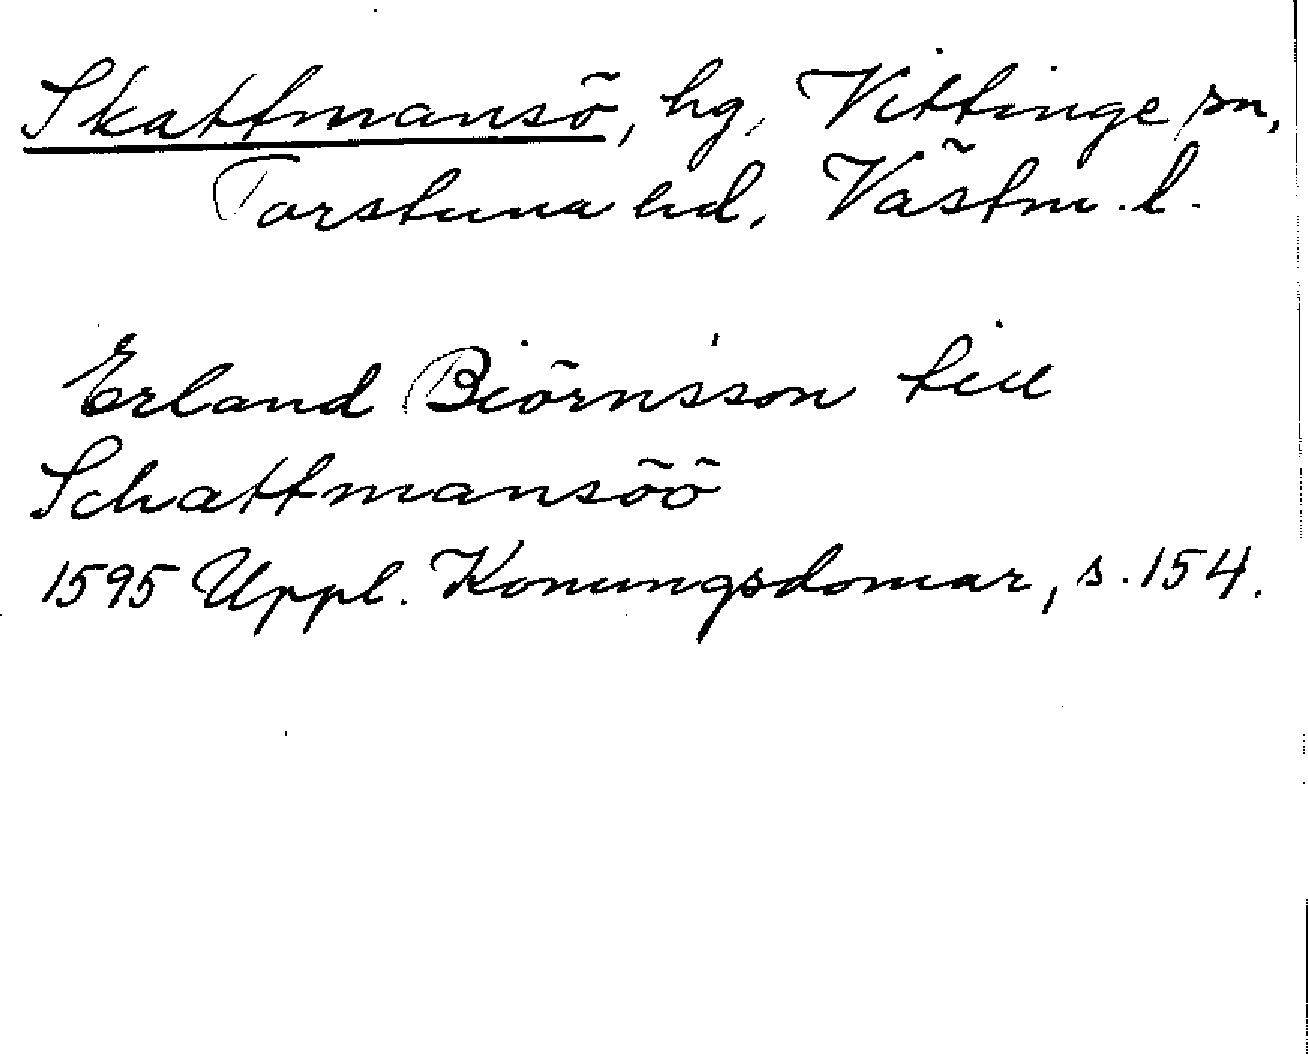 Skattmansö, hg, Vittinge sn,
Torstuna hd, Västm. l.
Erland Biörn'sson till
Schattmansöö
1595 Uppl. Konungsdomar, s. 154.